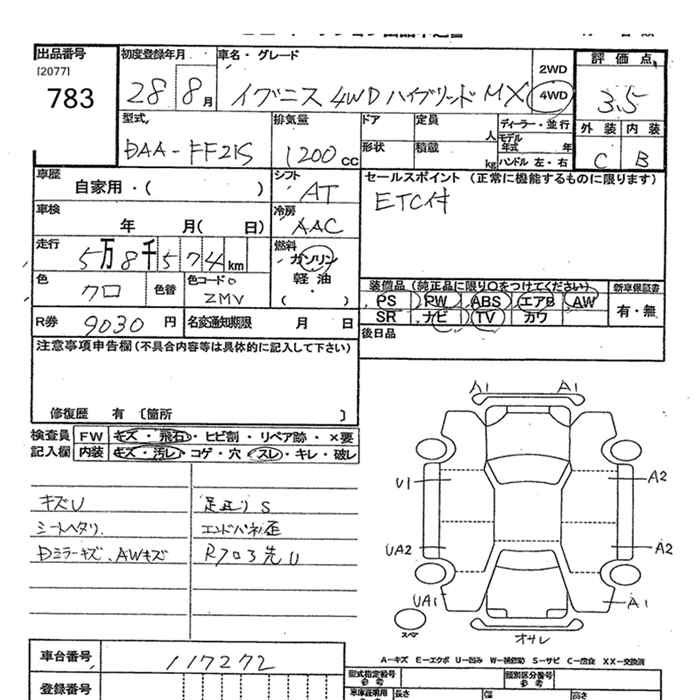 出品番号
[2077]
783
初度登録年月
28 8月
車名・グレード
イグニス 4WD ハイブリッド MX
2WD
4WD
評価点
3.5
外装 内装
C B
型式
DAA-FF21S
排気量
1200cc
ドア
定員
人
ディーラー・並行
モデル年式 年
形状
積載
kg
ハンドル 左・右
車歴
自家用・( )
シフト
AT
セールスポイント (正常に機能するものに限ります)
ETC付
車検
年 月( 日)
冷房
AAC
走行
5万8千574km
燃料
ガソリン
軽油
( ・ )
色
クロ
色替
色コードO
ZMV
装備品(純正品に限り○をつけてください)
新車保証書
PS PW ABS エアB AW
有・無
SR ナビ TV カワ
R券 9030円
名変通知期限 月 日
後日品
注意事項申告欄(不具合内容等は具体的に記入して下さい)
修復歴 有 〔箇所 〕
検査員記入欄
FW キズ・飛石・ヒビ割・リペア跡・×要
内装 キズ・汚レ・コゲ・穴・スレ・キレ・破レ
キズU
シートヘタリ
Dミラーキズ、AWキズ
足廻りS
エンドパネル歪
Rフロア先U
A1 A1
U1 A2
UA2 A2
UA1 A1
スペア
オサレ
A-キズ E-エクボ U-凹み W-補修跡 S-サビ C-腐食 XX-交換済
車台番号
117272
登録番号
型式指定番号
参考
類別区分番号
参考
車庫証明用
長さ
幅
高さ